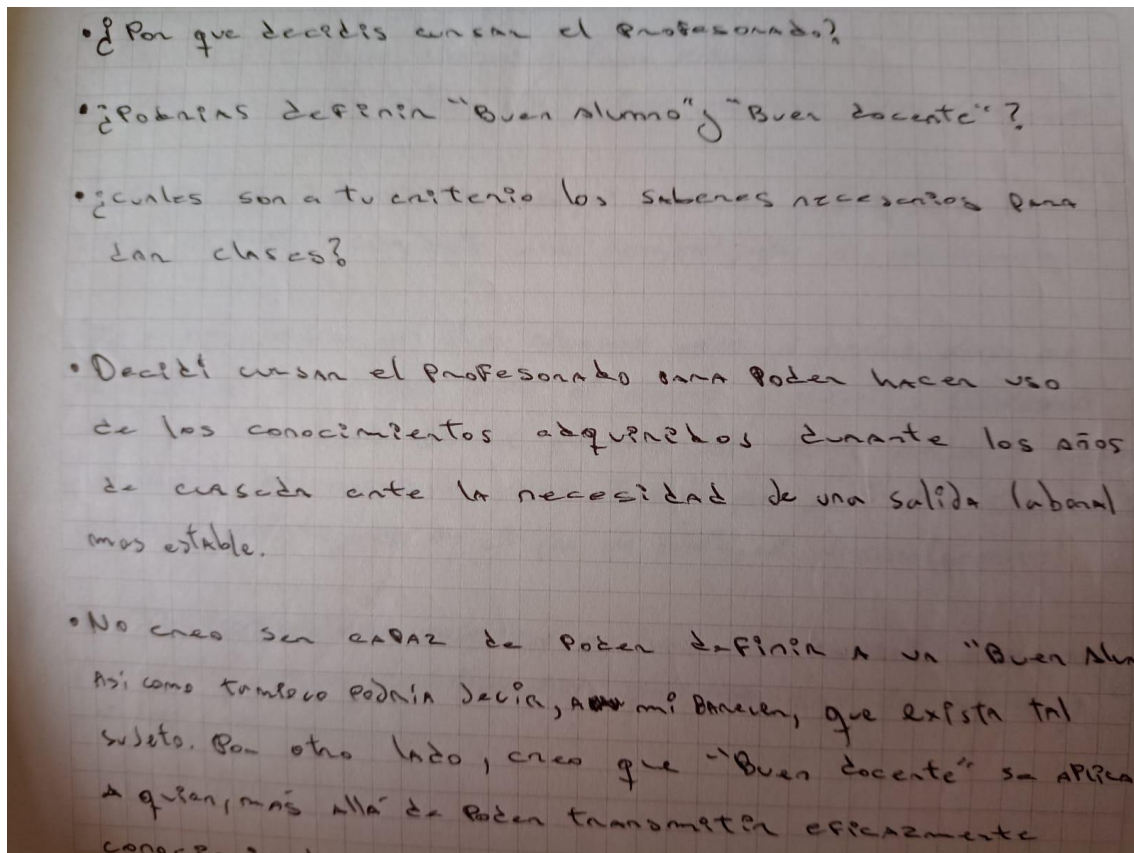 • ¿Por que decidis cursar el profesorado?
• ¿Podrias definir "Buen Alumno" y "Buen docente"?
• ¿cuales son a tu criterio los saberes necesarios para
dar clases?
• Decidí cursar el profesorado para poder hacer uso
de los conocimientos adquiridos durante los años
de cursada ante la necesidad de una salida laboral
mas estable.
• No creo ser capaz de poder definir a un "Buen Alum
Así como tampoco podría decir, a mi parecer, que exista tal
sujeto. Por otro lado, creo que "Buen docente" se aplica
a quien, más allá de poder transmitir eficazmente